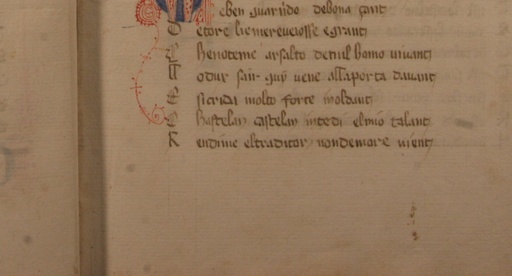 eben guarnido de bona çant
E tore lie mereueiosse e grant
C he no teme arsalto de nul homo viuant
M o dur sair guy uene alla porta dauant
E sicrida molto forte in oldant
C hastelan castelan intendi el mio talant
R endime el traditor non demore nient